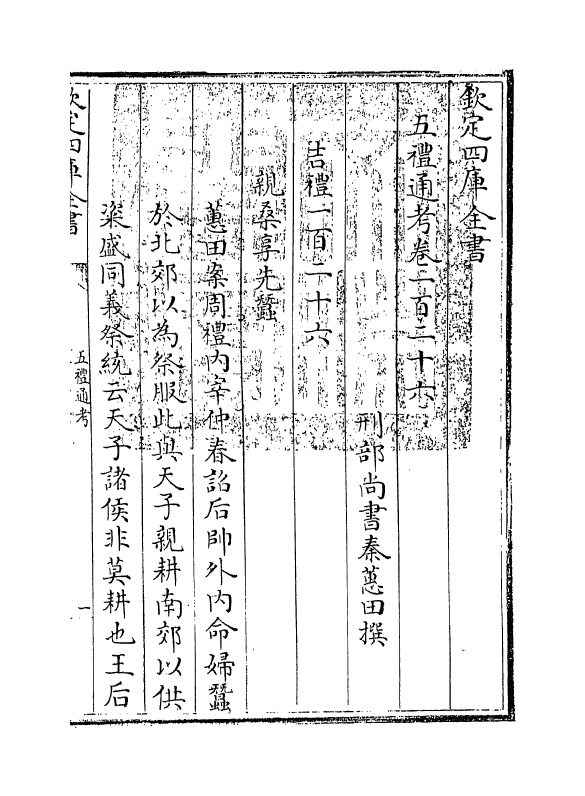 欽定四庫全書
五禮通考卷一百二十六
刑部尚書秦蕙田撰
吉禮一百二十六
親桑享先蠶
蕙田案周禮內宰仲春詔后帥外內命婦蠶
於北郊以為祭服此與天子親耕南郊以供
粢盛同義祭統云天子諸侯非莫耕也王后
欽定四庫全書
五禮通考
一